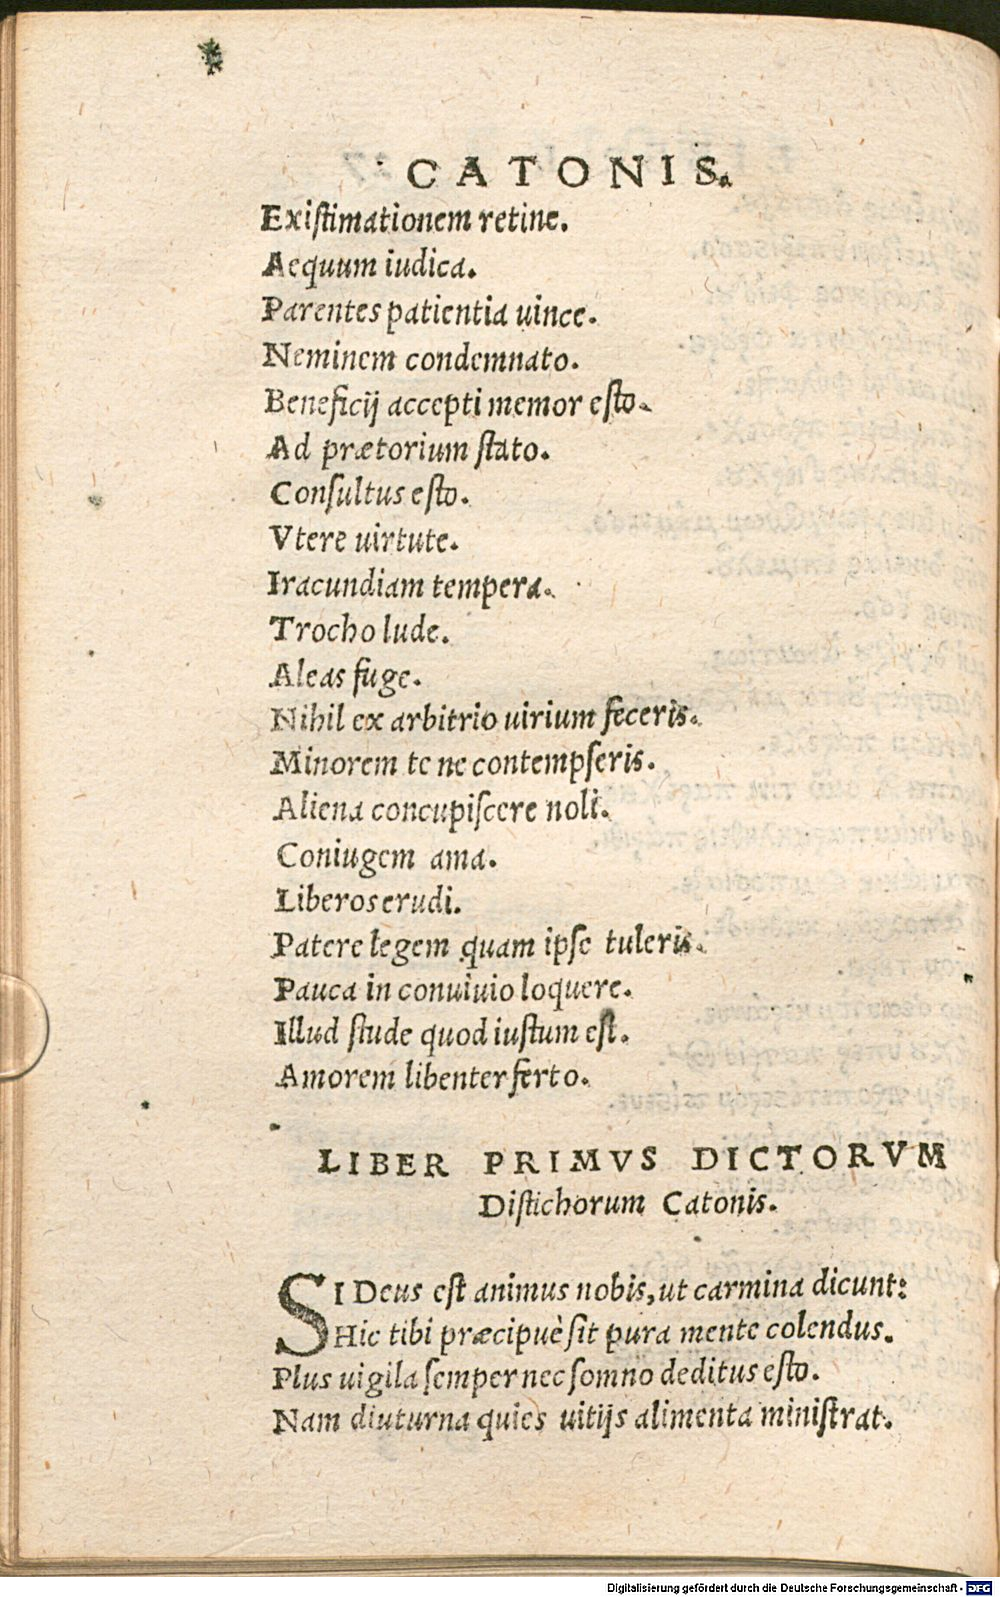 CATONIS.
Existimationem retine.
Aequum iudica.
Parentes patientia uince.
Neminem condemnato.
Beneficij accepti memor esto.
Ad prætorium stato.
Consultus esto.
Vtere uirtute.
Iracundiam tempera.
Trocho lude.
Aleas fuge.
Nihil ex arbitrio uirium feceris.
Minorem te ne contempseris.
Aliena concupiscere noli.
Coniugem ama.
Liberos erudi.
Patere legem quam ipse tuleris.
Pauca in conuiuio loquere.
Illud stude quod iustum est.
Amorem libenter ferto.
LIBER PRIMVS DICTORVM
Distichorum Catonis.
SI Deus est animus nobis, ut carmina dicunt:
Hic tibi præcipuè sit pura mente colendus.
Plus uigila semper nec somno deditus esto.
Nam diuturna quies uitijs alimenta ministrat.
Digitalisierung gefördert durch die Deutsche Forschungsgemeinschaft - DFG